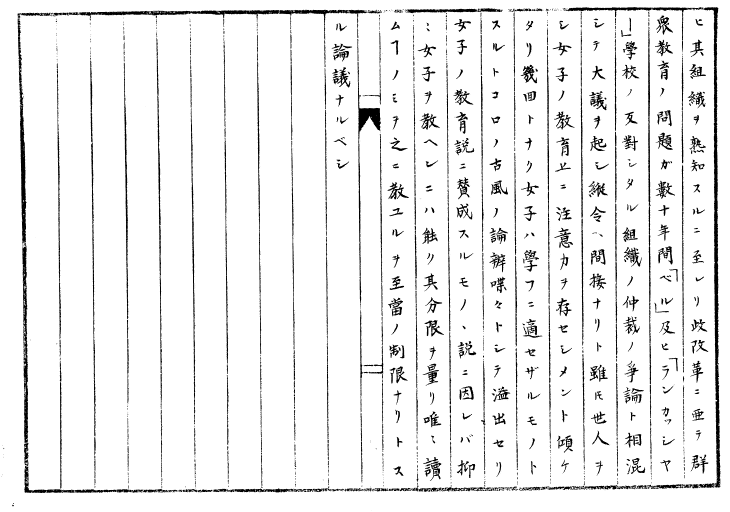 ヒ其組織ヲ熟知スルニ至レリ此改革ニ亜テ群
衆教育ノ問題ガ數十年間「ベル」及ヒ「ランカッシヤ
ー」學校ノ反對シタル組織ノ仲裁ノ爭論ト相混
シテ大議ヲ起シ縦令ヘ間接ナリト雖𪜈世人ヲ
シ女子ノ教育上ニ注意力ヲ存セシメント傾ケ
タリ幾回トナク女子ハ學フニ適セザルモノト
スルトコロノ古風ノ論辨喋々トシテ溢出セリ
女子ノ教育説ニ賛成スルモノヽ説ニ因レバ抑
ミ女子ヲ教ヘシニハ能ク其分限ヲ量リ唯ミ讀
ムヿノミヲ之ニ教ユルヲ至當ノ制限ナリトス
ル論議ナルベシ